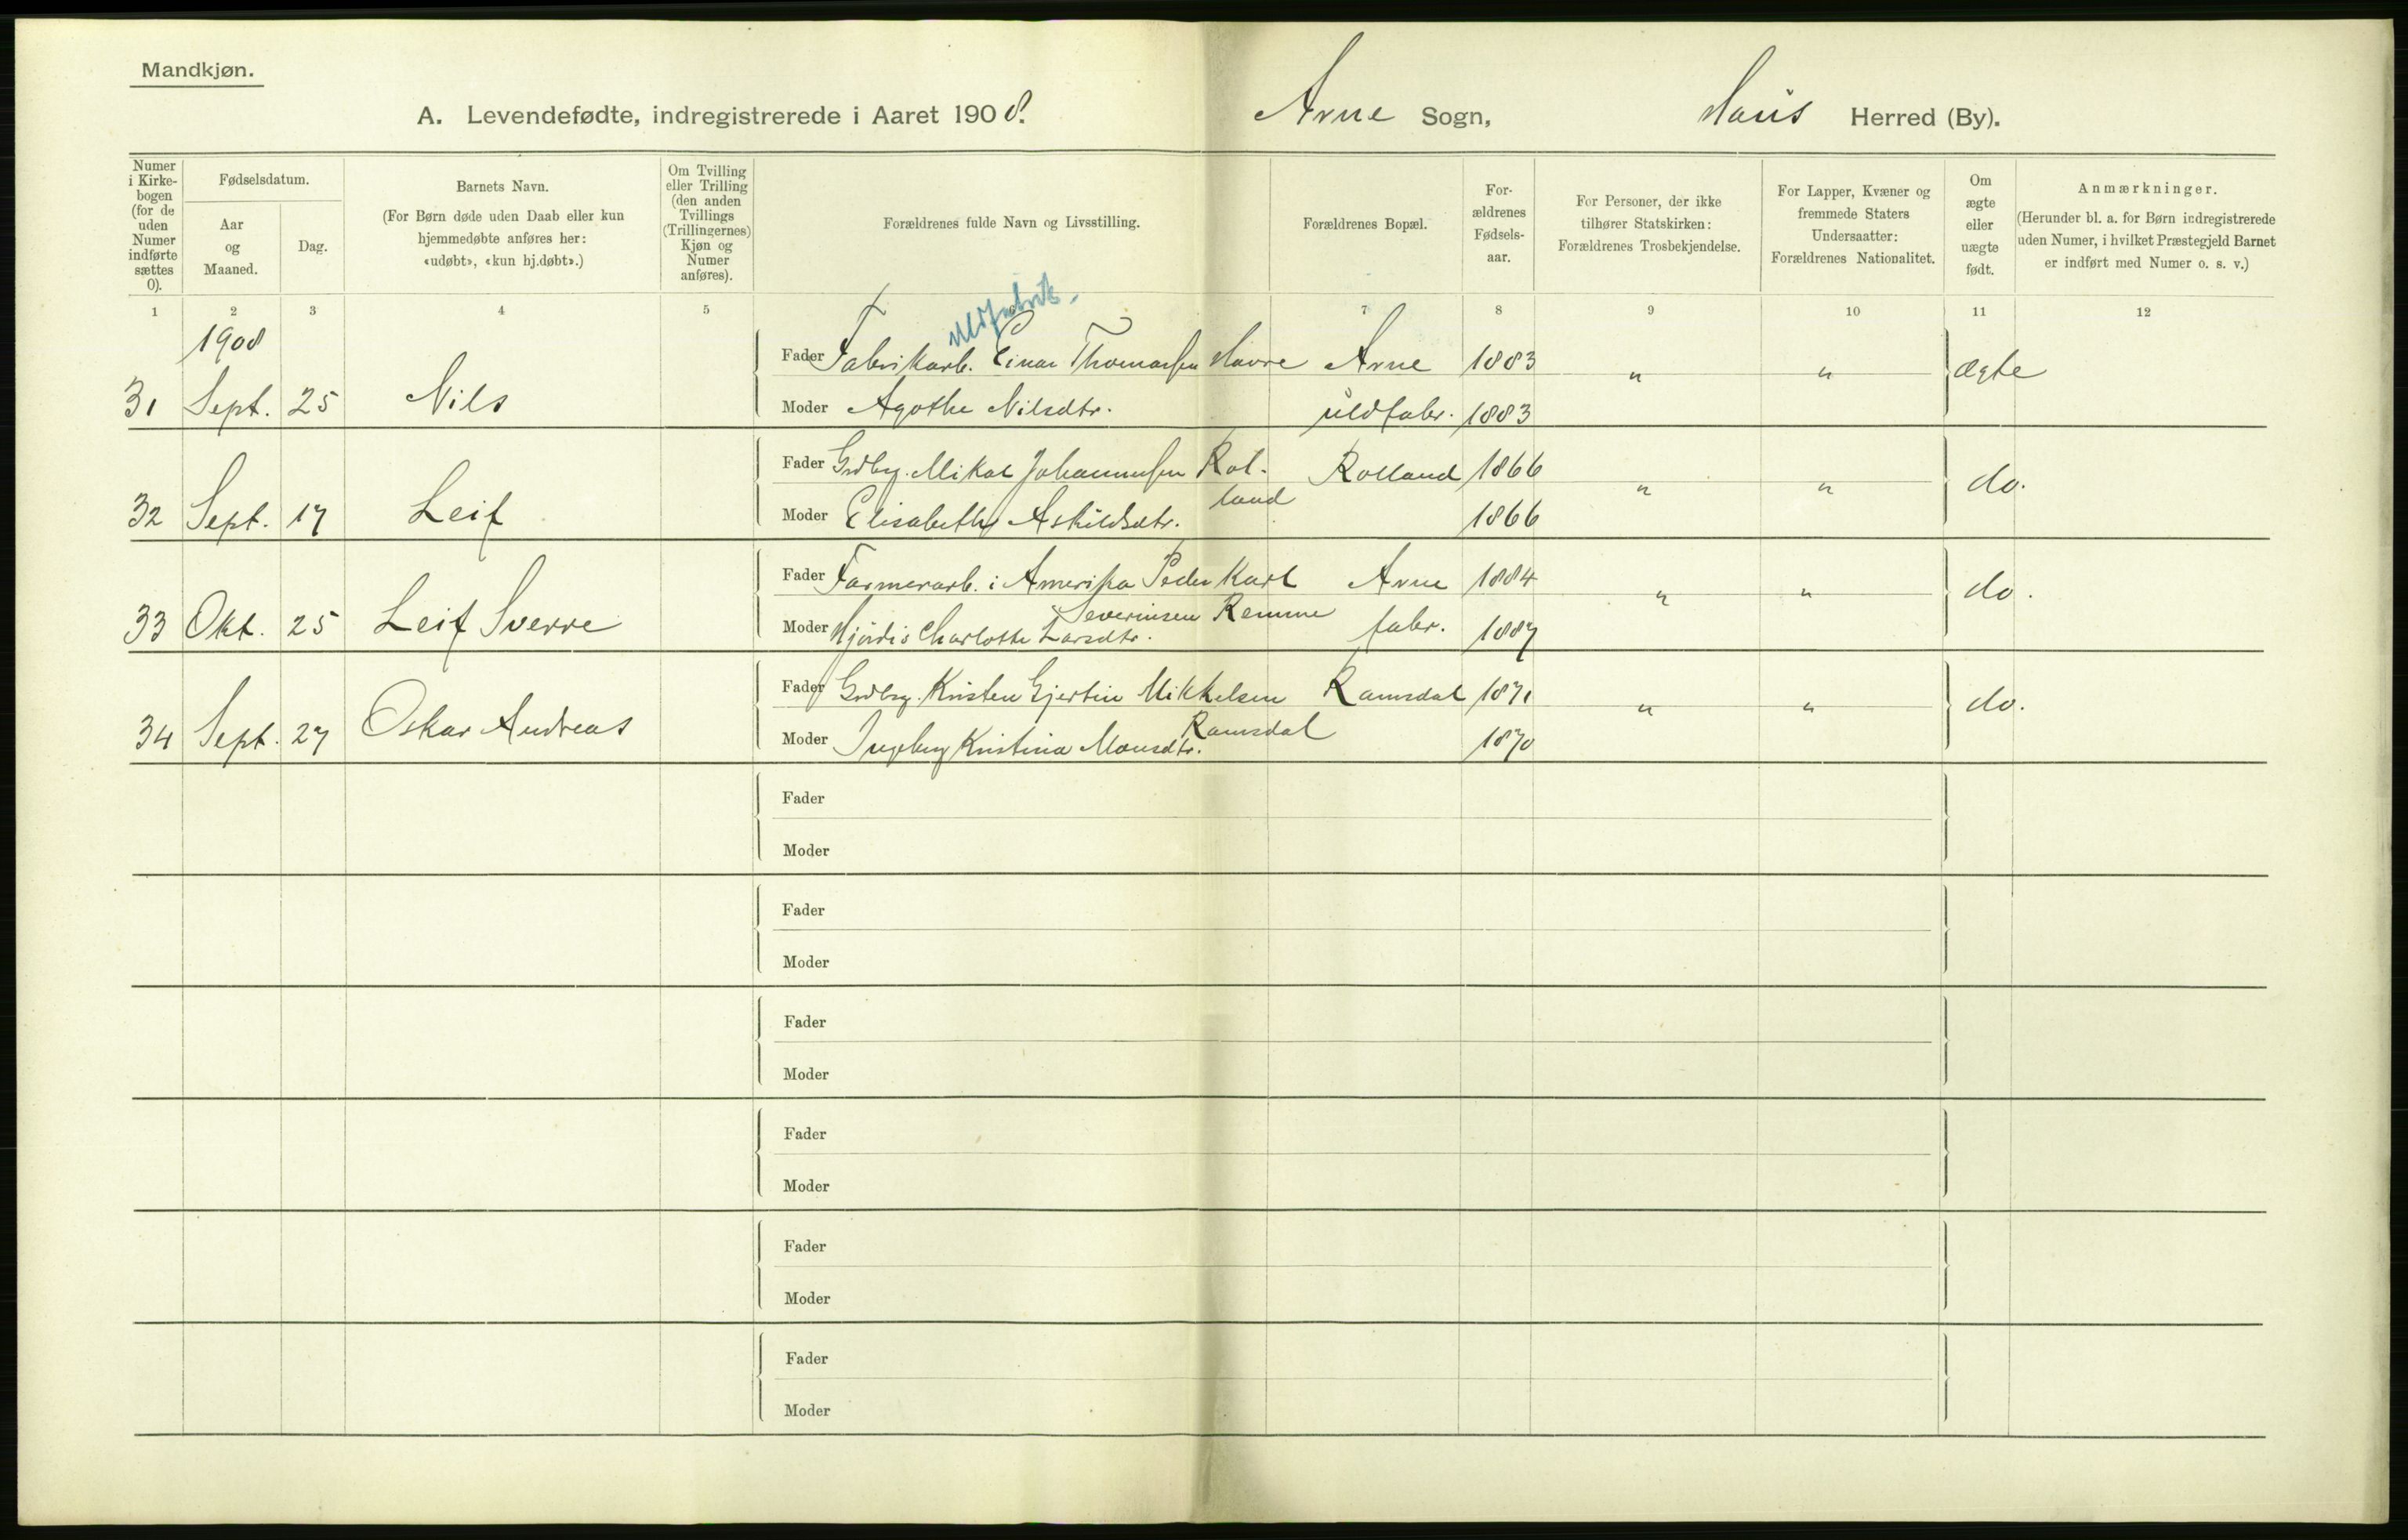 Mandkjøn.
A. Levendefødte, indregistrerede i Aaret 1908. Arne Sogn, Haus Herred (By).
Numer i Kirkebogen (for de uden Numer indførte sættes 0).
Fødselsdatum.
Aar og Maaned.
Dag.
Barnets Navn.
(For Børn døde uden Daab eller kun hjemmedøbte anføres her: «udøbt», «kun hj.døbt».)
Om Tvilling eller Trilling (den anden Tvillings (Trillingernes) Kjøn og Numer anføres).
Forældrenes fulde Navn og Livsstilling.
Forældrenes Bopæl.
Forældrenes Fødselsaar.
For Personer, der ikke tilhører Statskirken: Forældrenes Trosbekjendelse.
For Lapper, Kvæner og fremmede Staters Undersaatter: Forældrenes Nationalitet.
Om ægte eller uægte født.
Anmærkninger.
(Herunder bl. a. for Børn indregistrerede uden Numer, i hvilket Præstegjeld Barnet er indført med Numer o. s. v.)
1 2 3 4 5 7 8 9 10 11 12
1908
uldfabrik.
Fader Fabrikarb. Einar Thomassen Havre Arne 1883 " " ægte
31 Sept. 25 Nils
Moder Agathe Nilsdtr. uldfabr. 1883
Fader Grdbr. Mikal Johannessen Rol- Rolland 1866 " " do.
land
32 Sept. 17 Leif
Moder Elisabeth Askildsdtr. 1866
Fader Farmerarb. i Amerika Peder Karl Arne 1884 " " do.
Severinsen Remme
33 Okt. 25 Leif Sverre
Moder Hjördis Charlotte Larsdtr. fabr. 1887
Fader Grdbr. Kristen Gjertin Mikkelsen Ramsdal 1871 " " do.
Ramsdal
34 Sept. 27 Oskar Andreas
Moder Ingeborg Kristina Monsdtr. 1870
Fader
Moder
Fader
Moder
Fader
Moder
Fader
Moder
Fader
Moder
Fader
Moder